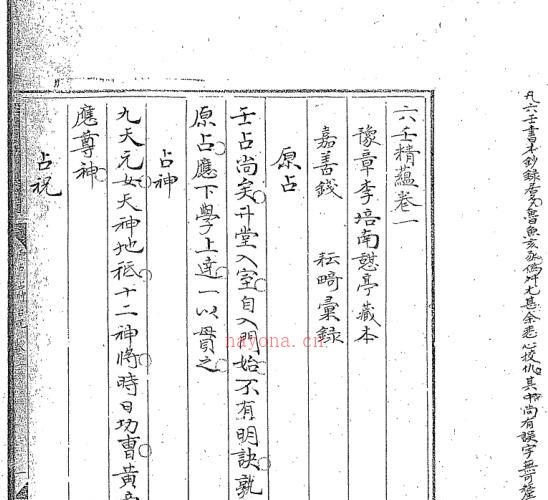 凡六壬書本鈔錄居多魯魚亥豕偽舛尤甚余悉心校仇其中尚有誤字無可
六壬精蘊卷一
豫章李培南憩亭藏本
嘉善錢 耘疇彙錄
原占
壬占尚矣升堂入室自入門始不有明訣孰
原占應下學上達一以貫之
占神
九天元女天神地祗十二神將時日功曹黃
應尊神
占祝
nayona.cn